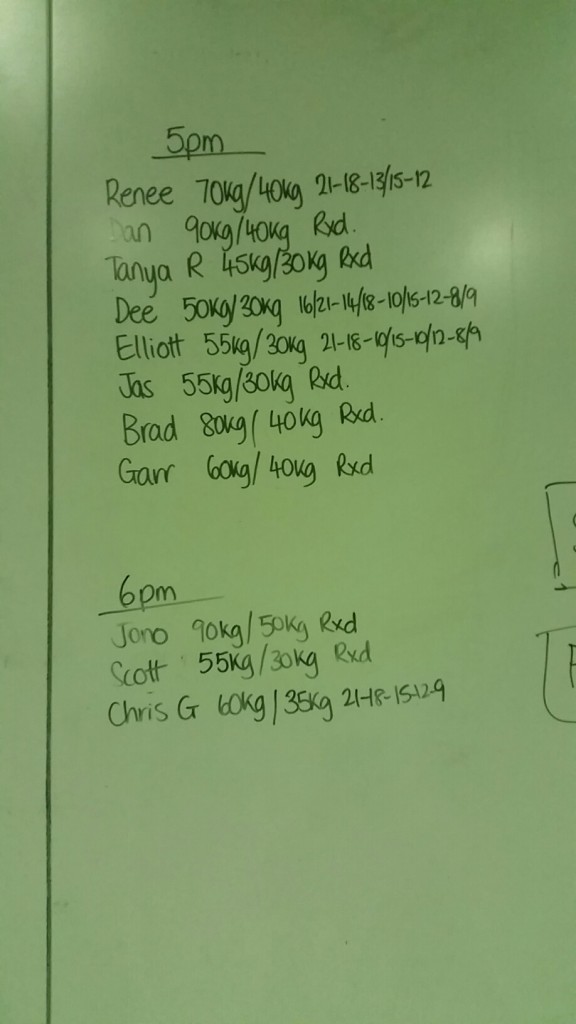 5pm
Renee 70kg/40kg 21-18-13/15-12
Dan 90kg/40kg Rxd.
Tanya R 45kg/30kg Rxd
Dee 50kg/30kg 16/21-14/18-10/15-12-8/9
Elliott 55kg/30kg 21-18-10/15-10/12-8/9
Jas 55kg/30kg Rxd.
Brad 80kg/40kg Rxd.
Garr 60kg/40kg Rxd
6pm
Jono 90kg/50kg Rxd
Scott 55kg/30kg Rxd
Chris G 60kg/35kg 21-18-15-12-9